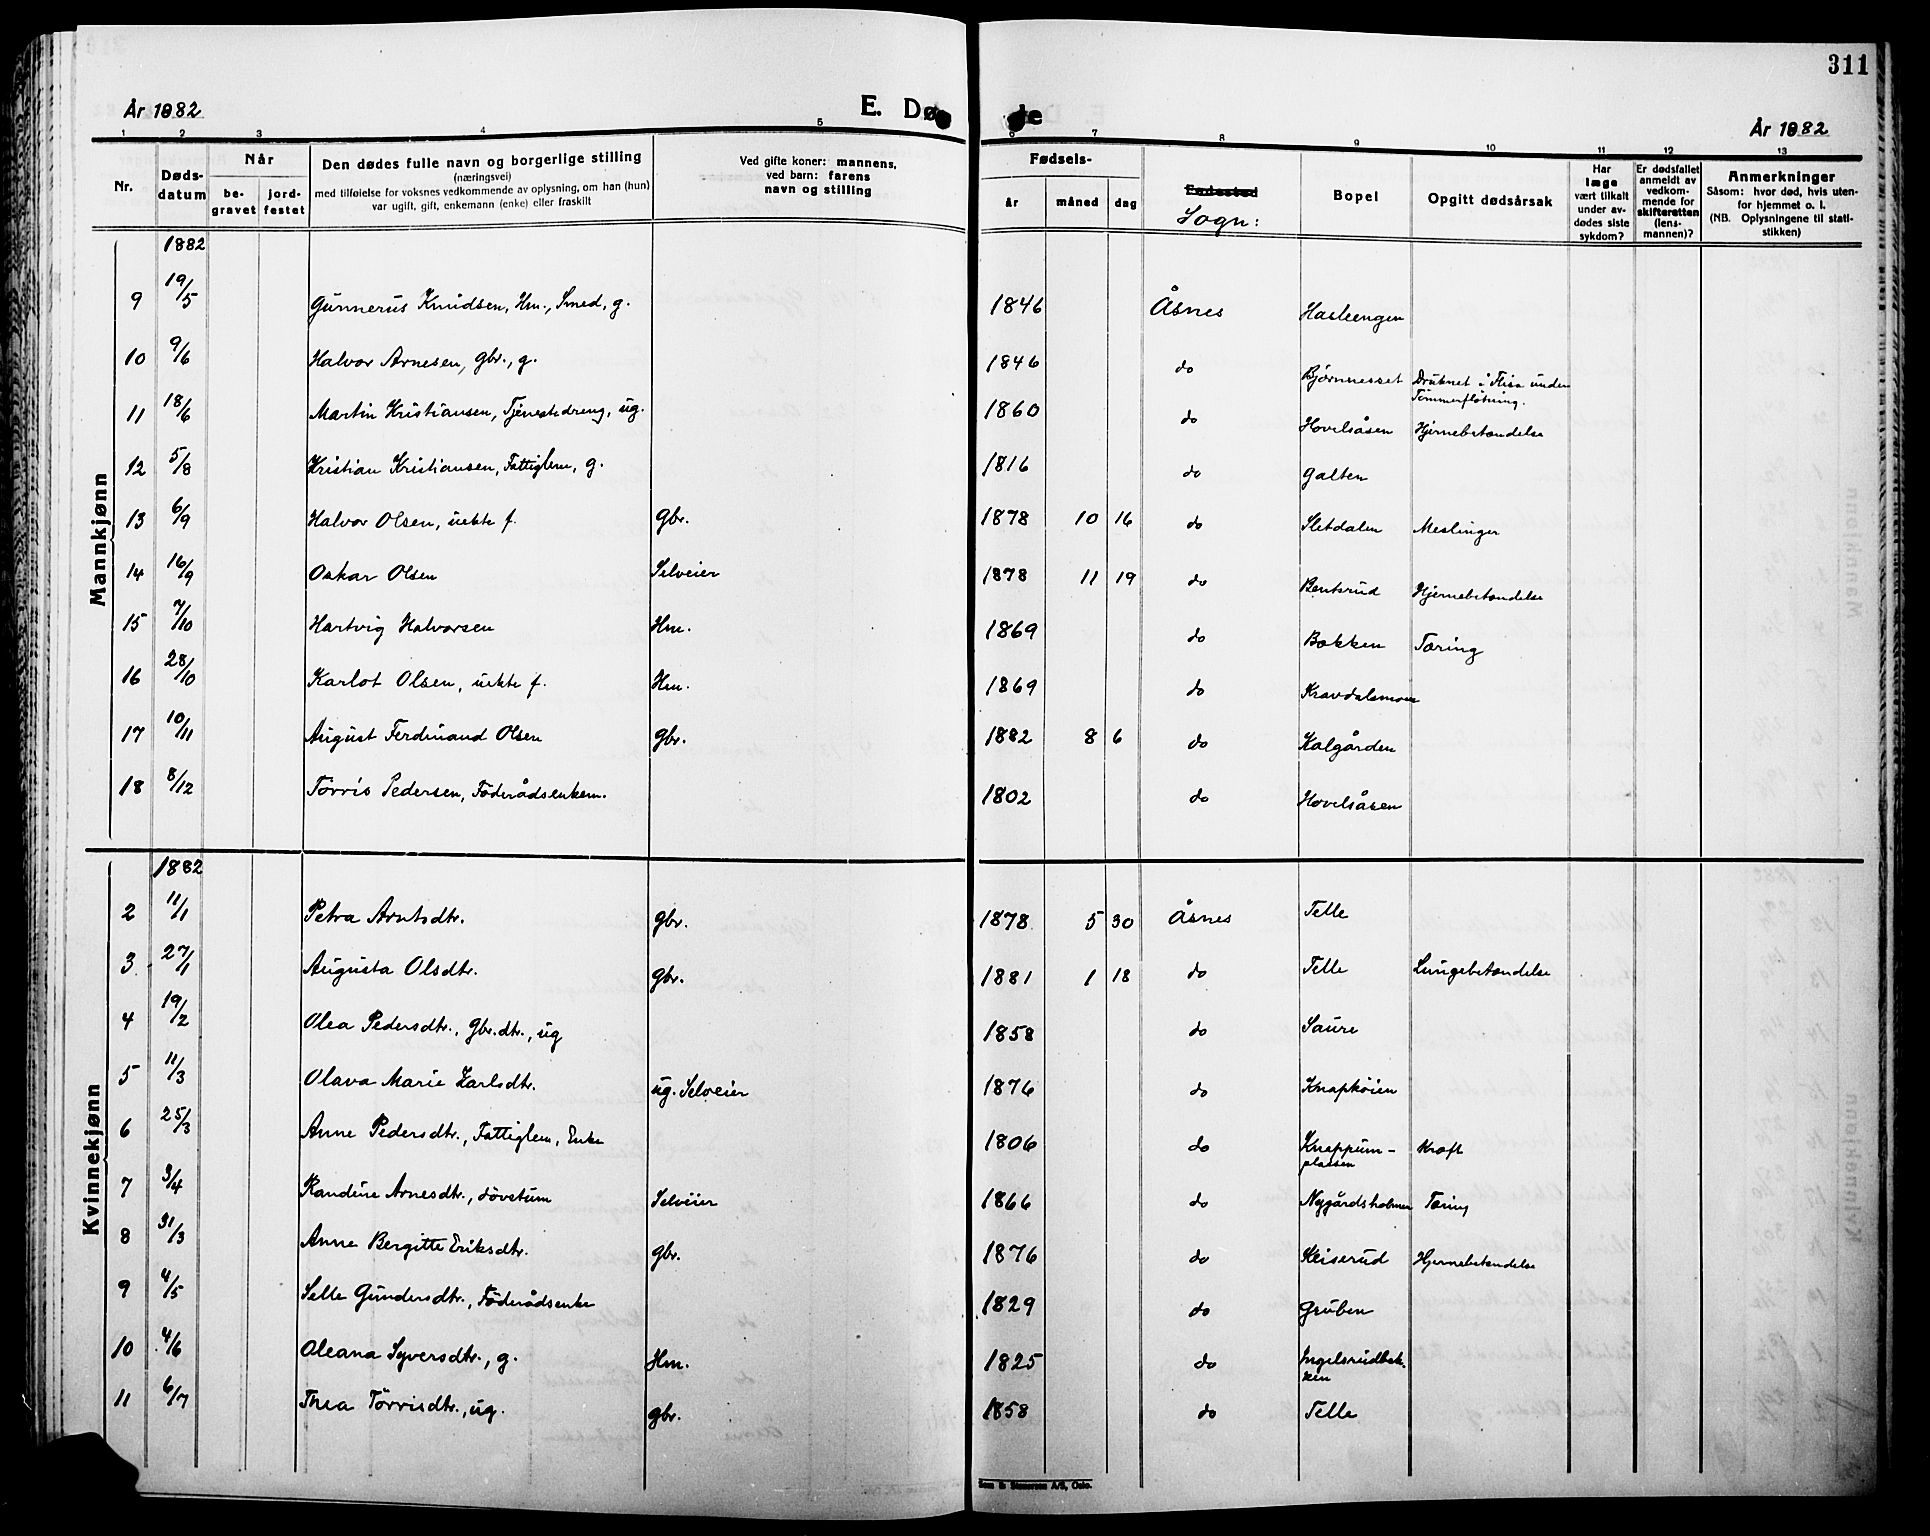 311
År 1882 E. Døde År 1882
1 2 3 4 5 6 7 8 9 10 11 12 13
Nr. Døds-datum Når be-gravet jord-festet Den dødes fulle navn og borgerlige stilling (næringsvei) med tilføielse for voksnes vedkommende av oplysning, om han (hun) var ugift, gift, enkemann (enke) eller fraskilt Ved gifte koner: mannens, ved barn: farens navn og stilling Fødsels- år måned dag Fødested Sogn: Bopel Opgitt dødsårsak Har læge vært tilkalt under av-dødes siste sykdom? Er dødsfallet anmeldt av vedkom-mende for skifteretten (lens-mannen)? Anmerkninger Såsom: hvor død, hvis uten-for hjemmet o. l. (NB. Oplysningene til stati-stikken)
Mannkjønn
1882
9 19/5 Gunnerus Knudsen, Hm., Smed, g. 1846 Åsnes Hasleengen
10 9/6 Halvor Arnesen, gbr., g. 1846 do Bjørnnesset Druknet i Flisa under Tømmerfløtning.
11 18/6 Martin Kristiansen, Tjenestedreng, ug. 1860 do Hovelsåsen Hjernebetændelse
12 5/8 Kristian Kristiansen, Fattiglem, g. 1816 do Galten
13 6/9 Halvor Olsen, uekte f. gbr. 1878 10 16 do Sletdalen Meslinger
14 16/9 Oskar Olsen Selveier 1878 11 19 do Bentsrud Hjernebetændelse
15 7/10 Hartvig Halvorsen Hm. 1869 do Bakken Tæring
16 28/10 Karlot Olsen, uekte f. Hm. 1869 do Kravdalsmoen
17 10/11 August Ferdinand Olsen gbr. 1882 8 6 do Kalgården
18 8/12 Törris Pedersen, Föderådsenkem. 1802 do Hovelsåsen
Kvinnekjønn
1882
2 11/1 Petra Arntsdtr. gbr. 1878 5 30 Åsnes Telle
3 27/1 Augusta Olsdtr. gbr. 1881 1 18 do Telle Lungebetændelse
4 19/2 Olea Pedersdtr., Gbr.dtr., ug 1858 do Saure
5 11/3 Olava Marie Karlsdtr. ug. Selveier 1876 do Knapköien
6 25/3 Anne Pedersdtr., Fattiglem, Enke 1806 do Knappum-plassen Kræft
7 3/4 Randine Arnesdtr., dövstum Selveier 1866 do Nygårdsholmen Tæring
8 31/3 Anne Bergitte Eriksdtr. gbr. 1876 do Keiserud Hjernebetændelse
9 4/5 Selle Gundersdtr., Föderådsenke 1829 do Gruben
10 4/6 Oleana Syversdtr., g. Hm. 1825 do Ingelsrudbak-ken
11 6/7 Thea Törrisdtr., ug. gbr. 1858 do Telle
Sem & Stenersen A/S, Oslo.